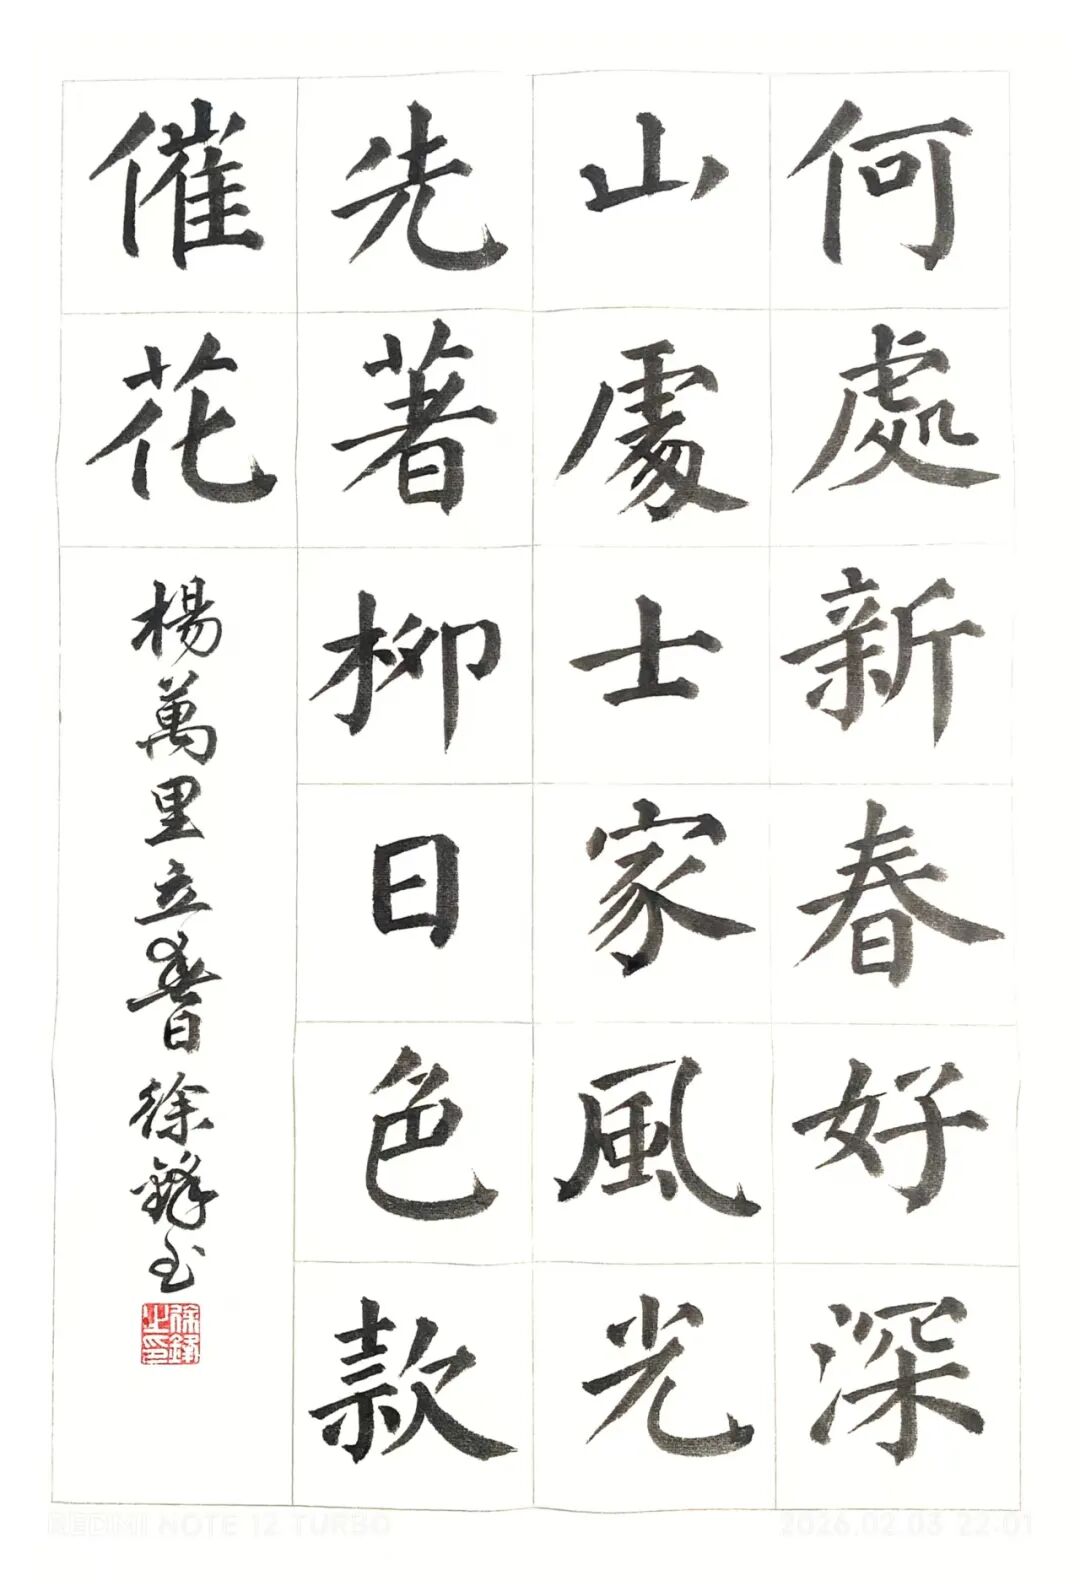 何處新春好深
山處士家風光
先著柳日色款
催花
楊萬里立春日徐鋒書
徐鋒之印
REDMI NOTE 12 TURBO
2026.02.03 22:01